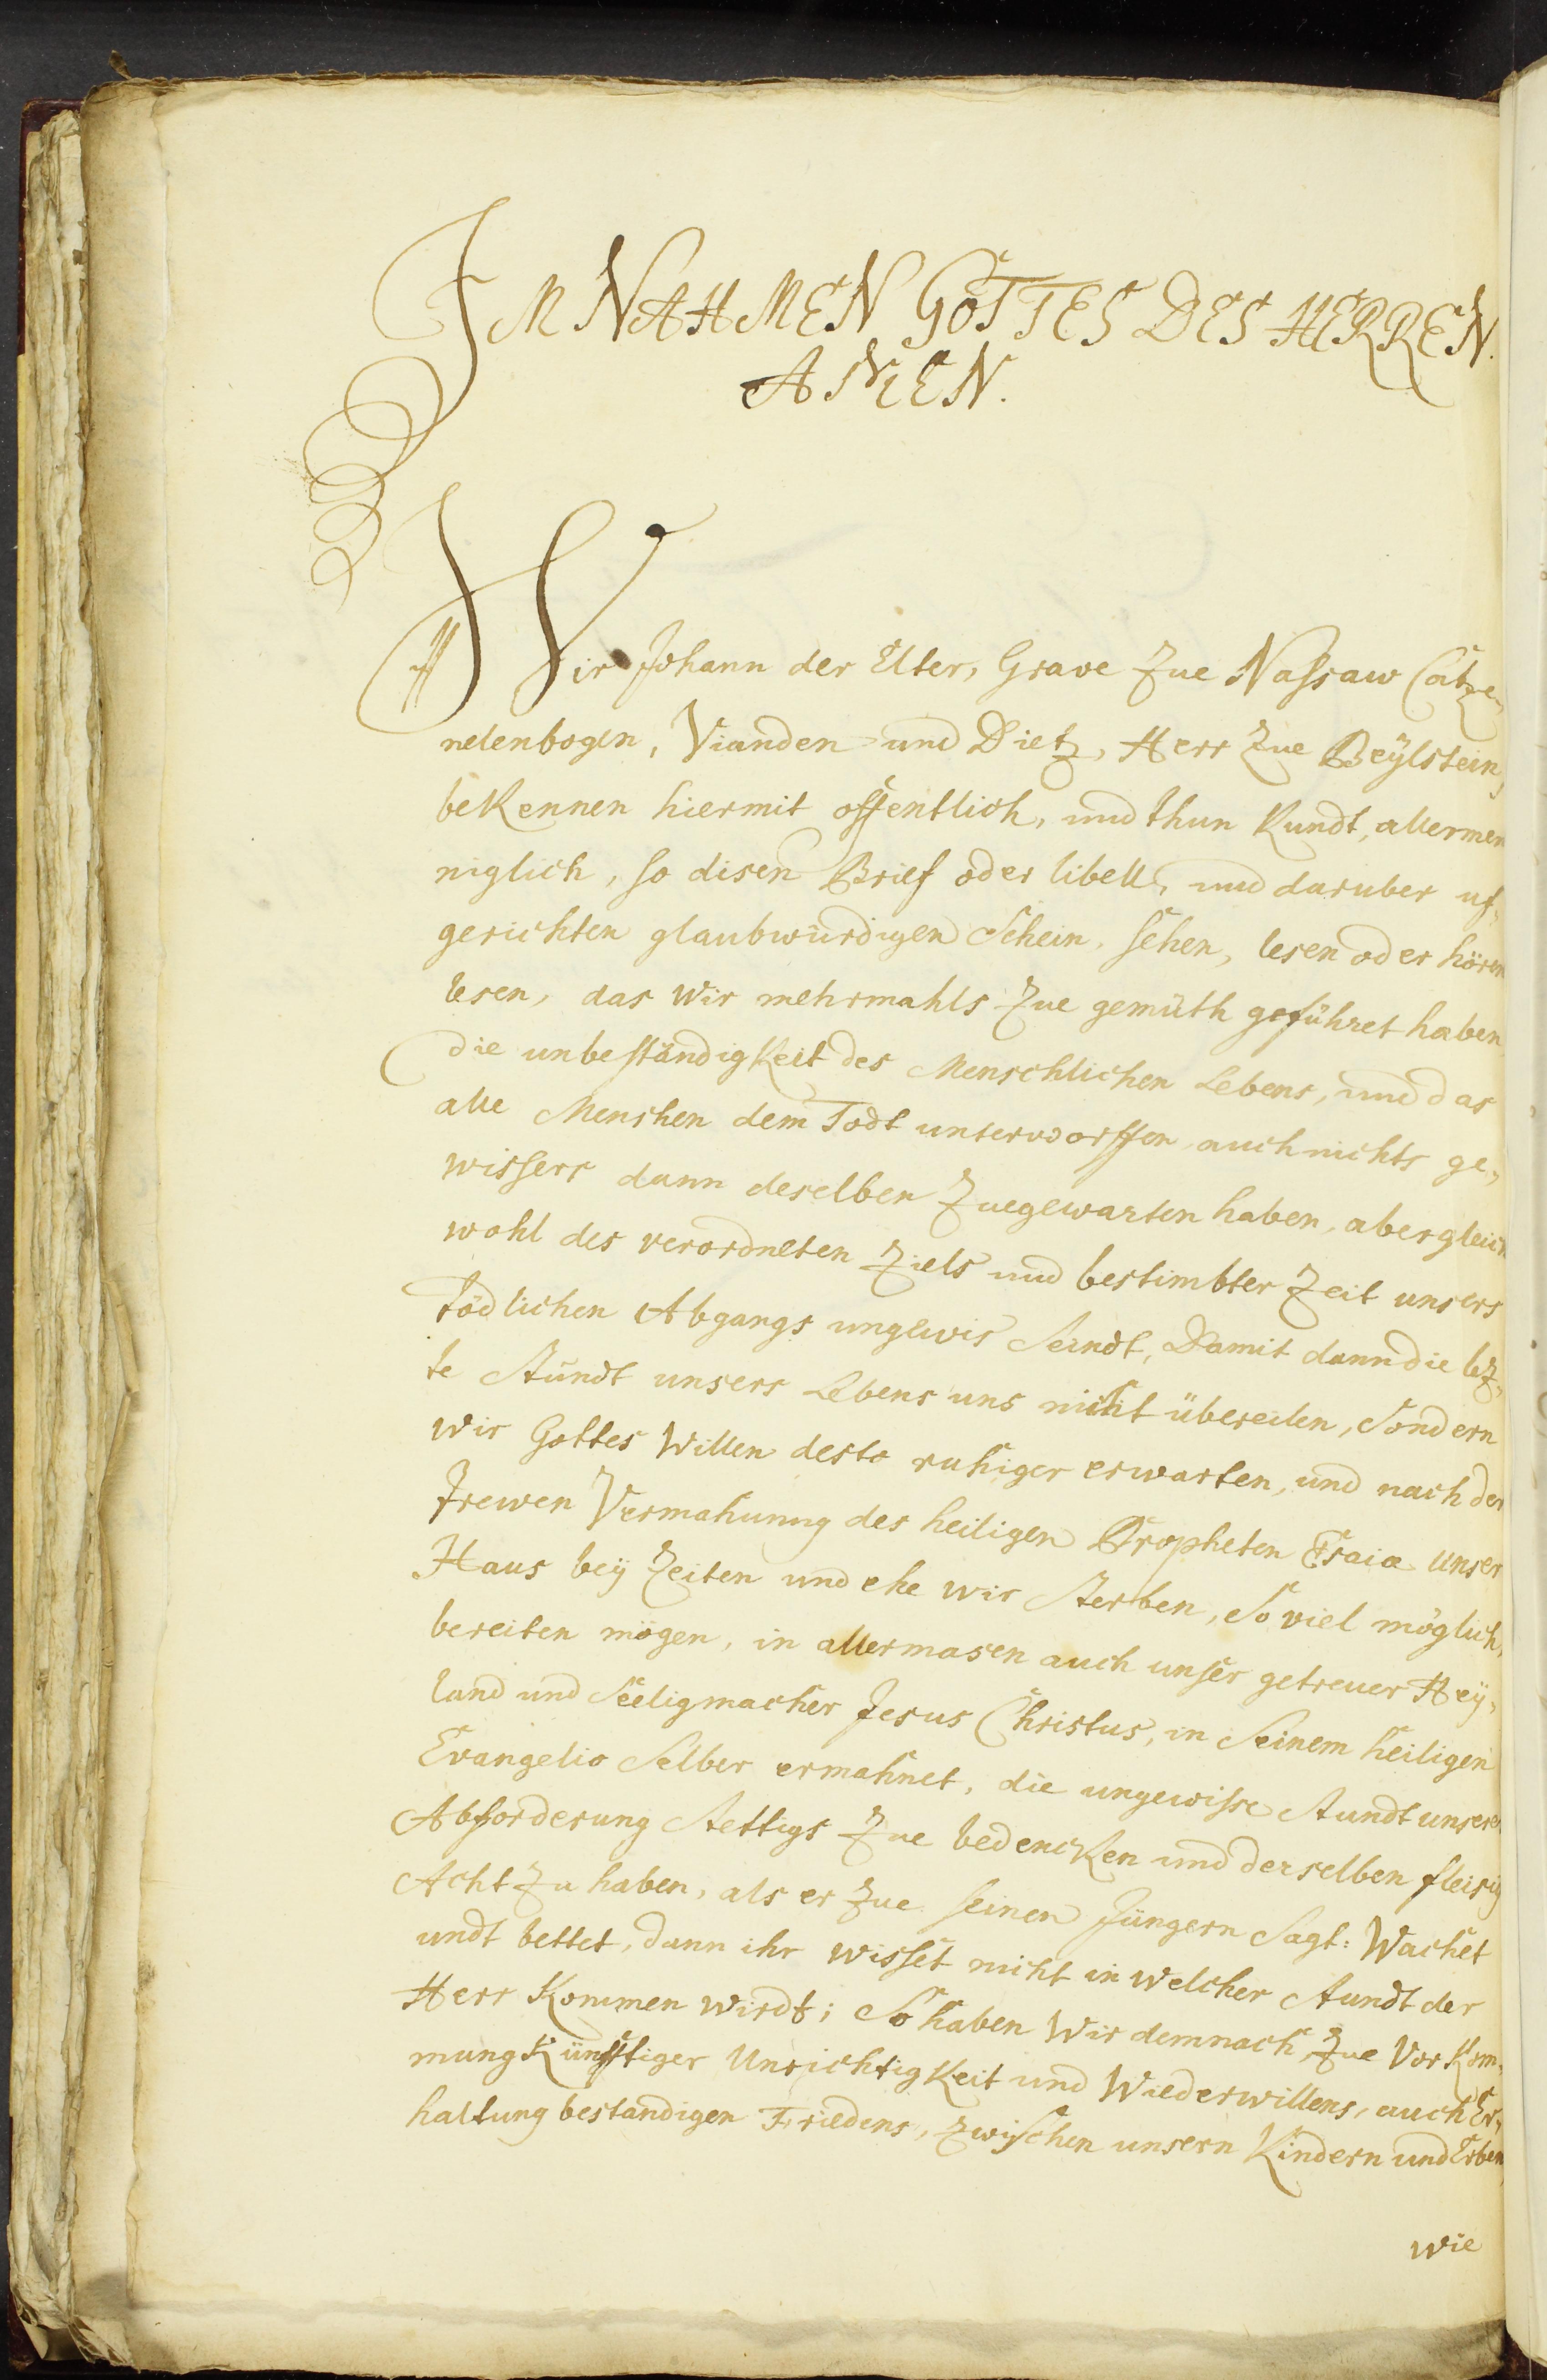 IM NAHMEN GOTTES DES HERREN.
AMEN.
Wir Johann der Elter, Grave zue Nassaw Catze„
nelenbogen, Vianden und Dietz, Herr zue Beÿlstein,
bekennen hiermit offentlich, und thun kundt, allermen
niglich, so disen Brief oder libell, und daruber uf„
gerichten glaubwürdigen Schein, sehen, lesen oder hören
lesen, das wir mehrmahls zue gemüth geführet haben
die unbeständigkeit des Menschlichen Lebens, und das
alle Menschen dem Todt unterworffen, auch nichts ge„
wissers dann deselben zuegewarten haben, aber gleich
wohl des verordneten Ziels und bestimbter Zeit unsers
tödlichen Abgangs ungewis Seindt, Damit dann die letz„
te Stundt unsers Lebens uns nicht übereilen, Sondern
wir Gottes Willen desto ruhiger erwarten, und nach der
trewen Vermahnung des heiligen Propheten Esaiæ unser
Haus beÿ Zeiten und ehe wir Sterben, So viel möglich,
bereiten mögen, in allermasen auch unser getreuer Heÿ„
land und Seeligmacher Jesus Christus, in Seinem heiligen
Evangelio Selber ermahnet, die ungewisse Stundt unserer
Abforderung Stettigs zue bedencken und derselben fleisig
Acht zu haben, als er zue seinen Jüngern Sagt: Wachet
undt bettet, dann ihr wisset nicht in welcher Stundt der
Herr kommen wirdt; So haben Wir demnach, zue Vorkom„
mung künfftiger Unrichtigkeit und Wiederwillens, auch Er„
haltung bestandigen Friedens, zwischen unsern Kindern und Erben,
wie